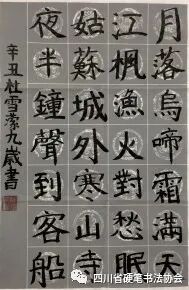 月落烏啼霜滿天
江楓漁火對愁眠
姑蘇城外寒山寺
夜半鐘聲到客船
辛丑杜雪蒙九歲書
四川省硬笔书法协会